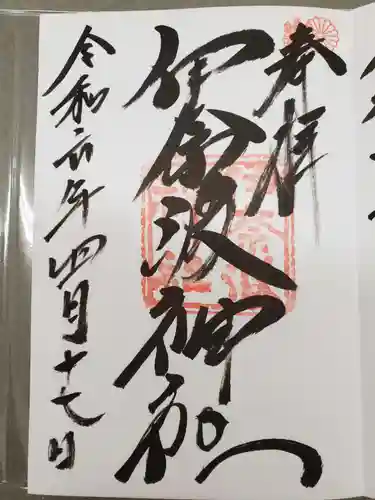 奉拝
伊奈波神社
令和六年四月十七日